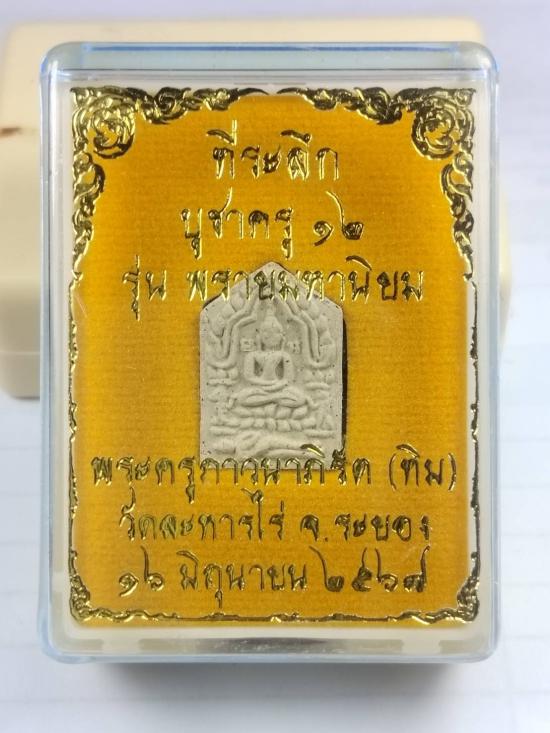 ที่ระลึก
บูชาครู ๑๒
รุ่น พรายมหานิยม
พระครูภาวนาภิรัต (ทิม)
วัดละหารไร่ จ.ระยอง
๑๖ มิถุนายน ๒๕๖๗